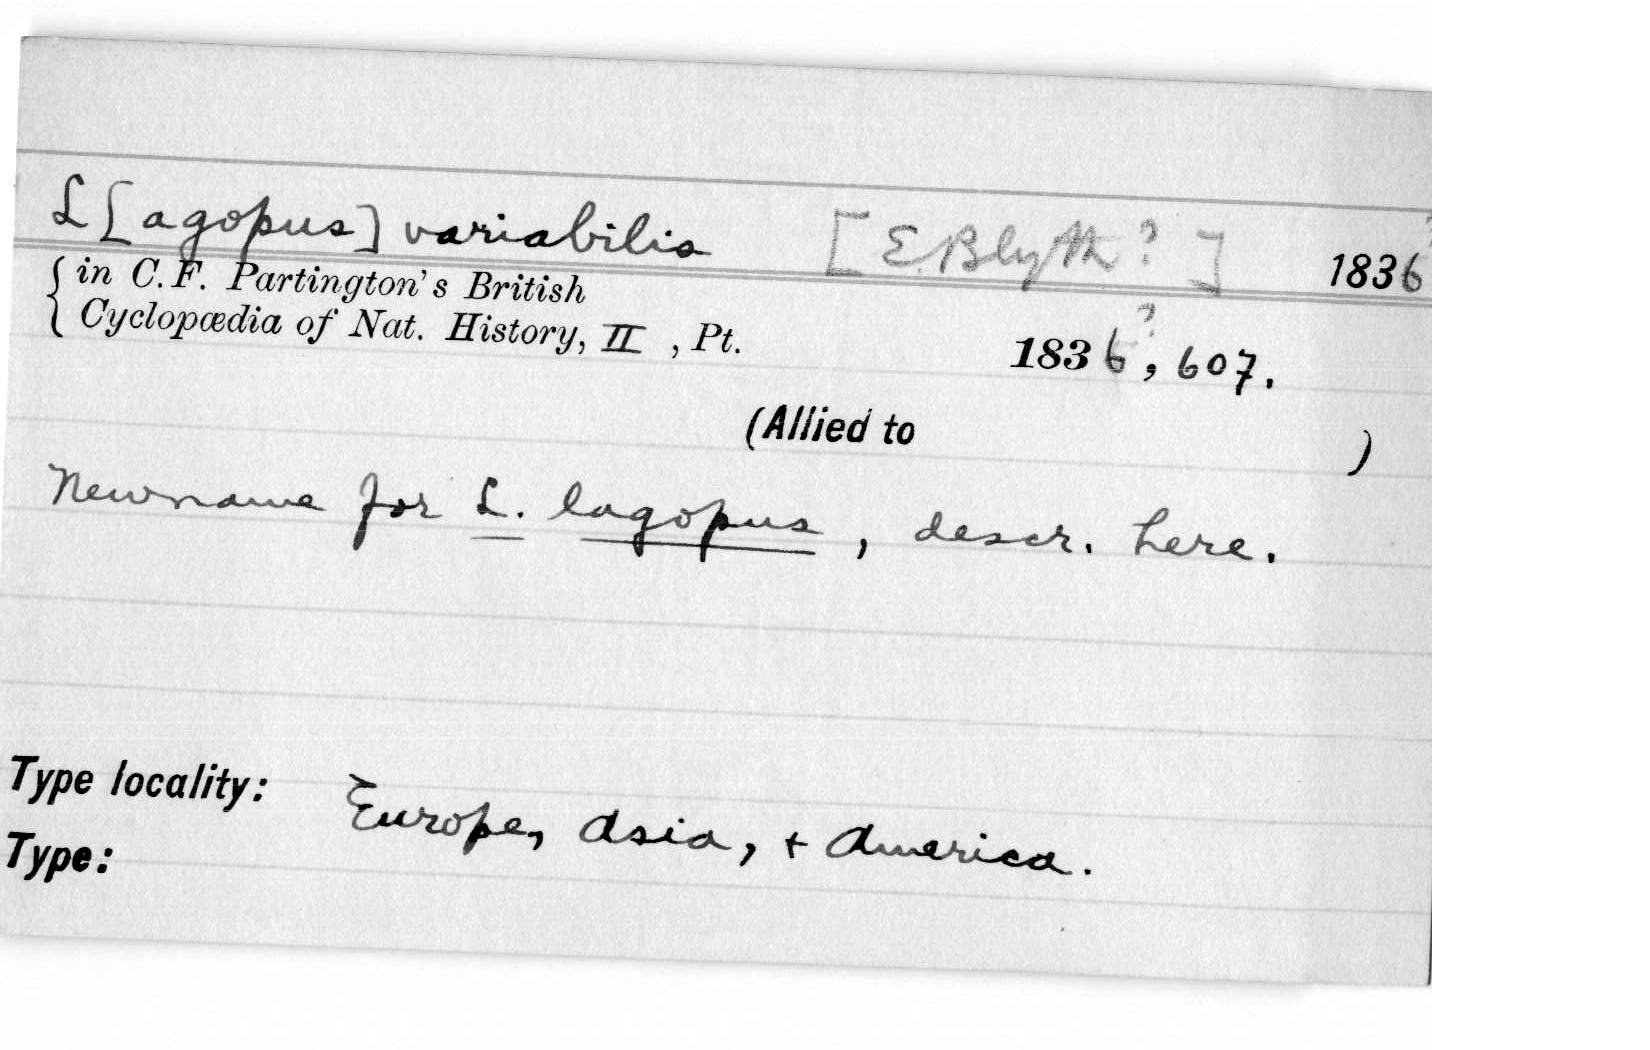 L[agopus] variabilis [E. Blyth?] 1836?
in C. F. Partington's British
Cyclopædia of Nat. History, II, Pt. 1836?, 607.
(Allied to )
New name for L. lagopus, descr. here.
Type locality: Europe, Asia, + America.
Type: